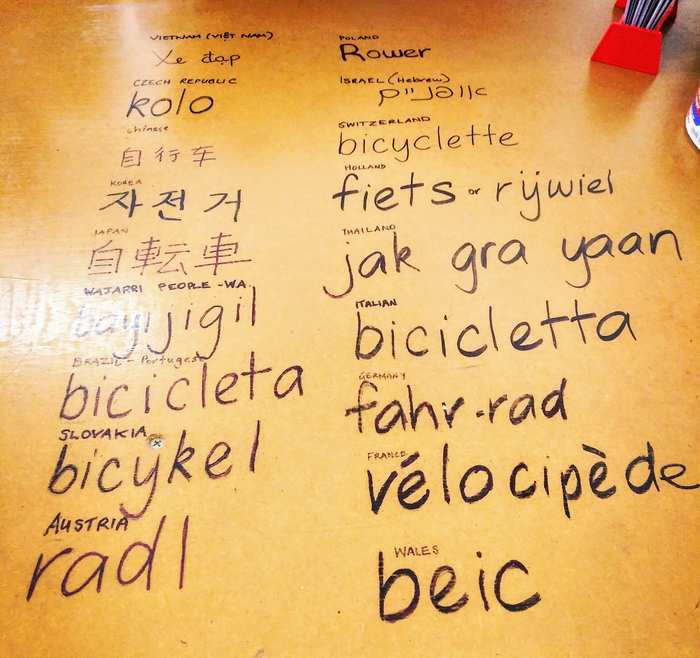 VIETNAM (VIỆT NAM)
Xe đạp
CZECH REPUBLIC
kolo
chinese
自行车
KOREA
자전거
JAPAN
自転車
WAJARRI PEOPLE - WA.
bayi jigil
BRAZIL - Portugese
bicicleta
SLOVAKIA
bicykel
AUSTRIA
radl
POLAND
Rower
ISRAEL (Hebrew)
SWITZERLAND
bicyclette
HOLLAND
fiets or rijwiel
THAILAND
jak gra yaan
ITALIAN
bicicletta
GERMANY
fahr-rad
FRANCE
vélocipède
WALES
beic